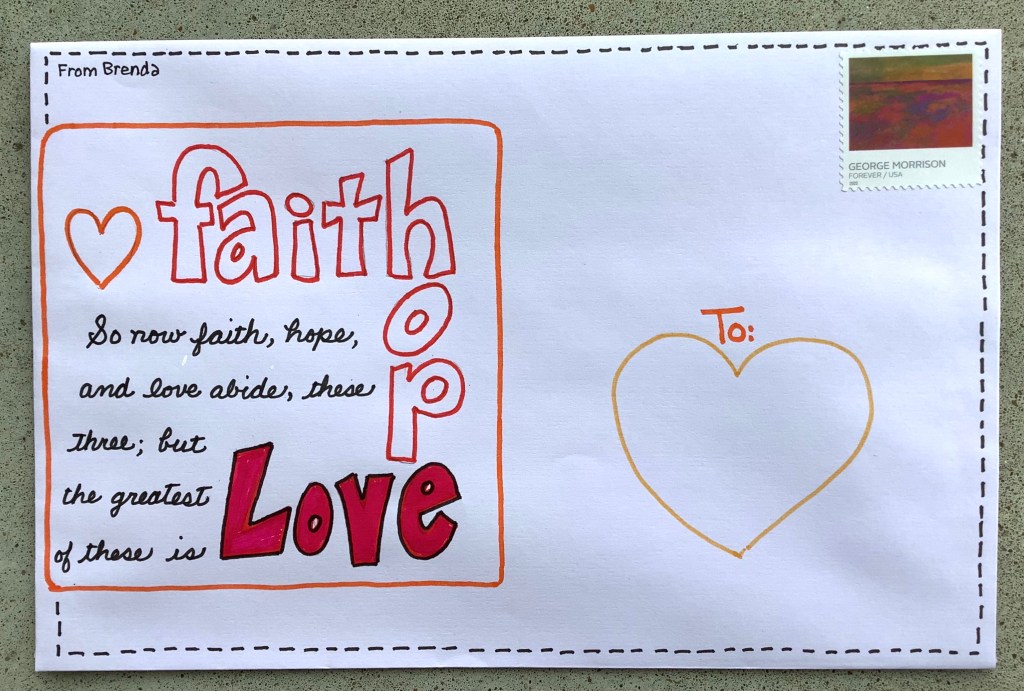 From Brenda
GEORGE MORRISON
FOREVER / USA
faith
hop
So now faith, hope,
and love abide, these
three; but
the greatest
of these is
Love
To: